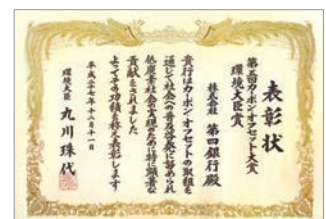 表彰状
第五回カーボン・オフセット大賞
環境大臣賞
株式会社 第四銀行殿
貴行はカーボン・オフセットの取組を
通じて社会への普及啓発に努められ
低炭素社会の実現のために特に顕著な
貢献をされました
よってその功績を称え表彰します
平成二十七年十二月十一日
環境大臣 丸川珠代